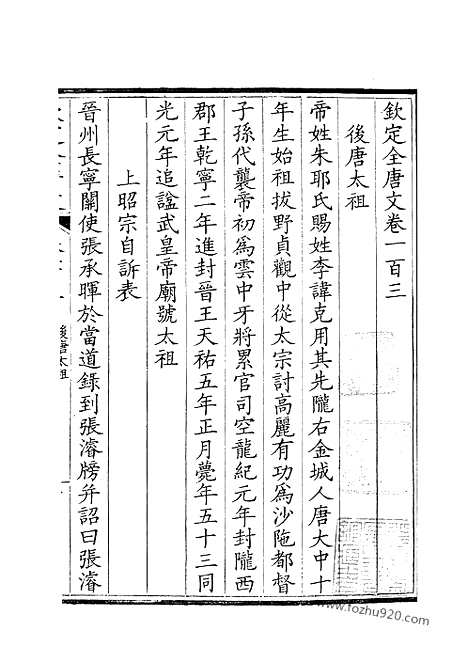 欽定全唐文卷一百三
後唐太祖
帝姓朱耶氏賜姓李諱克用其先隴右金城人唐大中十
年生始祖拔野貞觀中從太宗討高麗有功為沙陁都督
子孫代襲帝初為雲中牙將累官司空龍紀元年封隴西
郡王乾寧二年進封晉王天祐五年正月薨年五十三同
光元年追謚武皇帝廟號太祖
上昭宗自訴表
晉州長寧關使張承暉於當道錄到張濬牓并詔曰張濬
後唐太祖
www.fozhu920.com